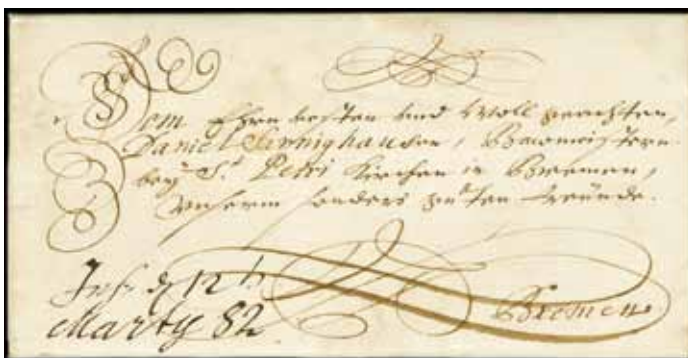 Dem Ehrnvesten und Woll geachten,
Daniel Sennighausen, Bawmeistern
bey St Petri Kirchen in Bremen,
Unserm sonders guten freunde.
Bremen
12
Marty 82